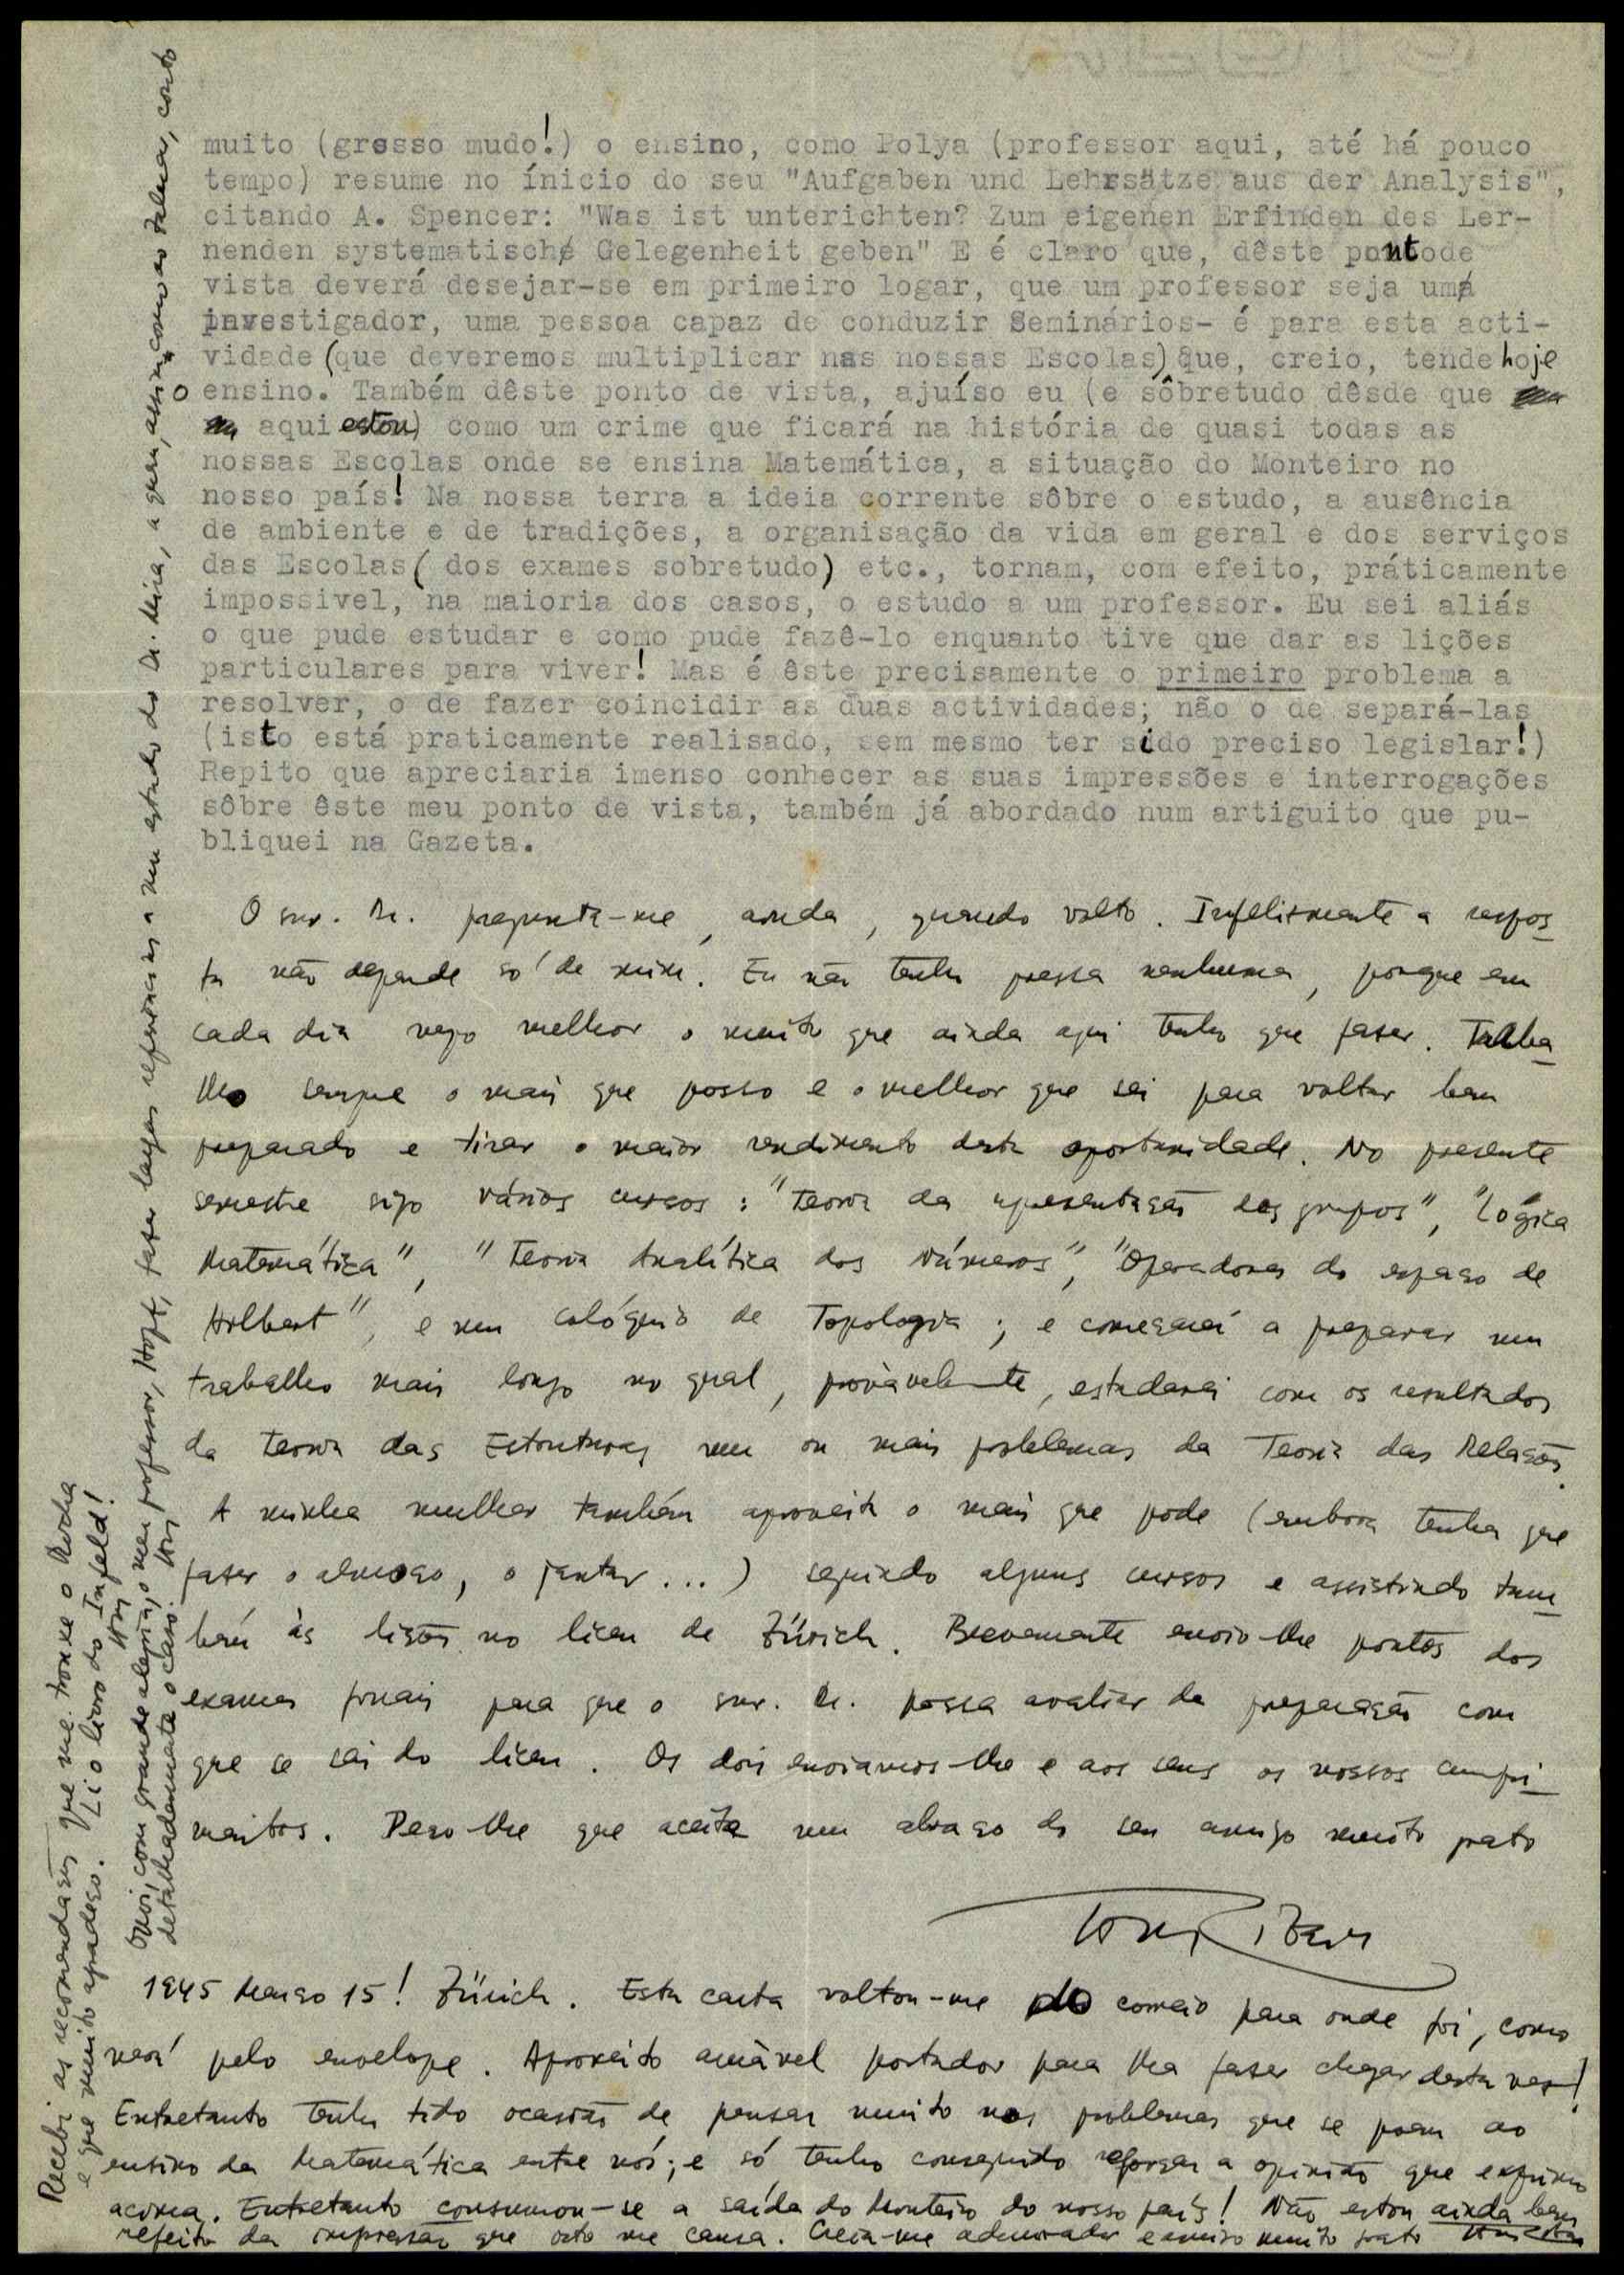 muito (grosso mudo!) o ensino, como Polya (professor aqui, até há pouco
tempo) resume no ínicio do seu "Aufgaben und Lehrsätze aus der Analysis",
citando A. Spencer: "Was ist unterichten? Zum eigenen Erfinden des Ler-
nenden systematisch Gelegenheit geben" E é claro que, dêste pontode
vista deverá desejar-se em primeiro logar, que um professor seja um
investigador, uma pessoa capaz de conduzir Seminários- é para esta acti-
vidade (que deveremos multiplicar nas nossas Escolas) que, creio, tende hoje
o ensino. Também dêste ponto de vista, ajuíso eu (e sôbretudo dêsde que
aqui estou) como um crime que ficará na história de quasi todas as
nossas Escolas onde se ensina Matemática, a situação do Monteiro no
nosso país! Na nossa terra a ideia corrente sôbre o estudo, a ausência
de ambiente e de tradições, a organisação da vida em geral e dos serviços
das Escolas( dos exames sobretudo) etc., tornam, com efeito, práticamente
impossivel, na maioria dos casos, o estudo a um professor. Eu sei aliás
o que pude estudar e como pude fazê-lo enquanto tive que dar as lições
particulares para viver! Mas é êste precisamente o primeiro problema a
resolver, o de fazer coincidir as duas actividades; não o de separá-las
(isto está praticamente realisado, sem mesmo ter sido preciso legislar!)
Repito que apreciaria imenso conhecer as suas impressões e interrogações
sôbre êste meu ponto de vista, também já abordado num artiguito que pu-
bliquei na Gazeta.
O snr. Dr. pregunta-me, ainda, quando volto. Infelismente a respos
ta não depende só de mim. Eu não tenho pressa nenhuma, porque em
cada dia vejo melhor o muito que ainda aqui tenho que faser. Traba
lho sempre o mais que posso e o melhor que sei para voltar bem
preparado e tirar o maior rendimento desta oportunidade. No presente
semestre sigo vários cursos: "Teoria da representação dos grupos", "Lógica
Matemática", "Teoria Analítica dos Números", "Operadores do espaço de
Hilbert", e um colóquio de Topologia; e começarei a preparar um
trabalho mais longo no qual, provàvelmente, estudarei com os resultados
da Teoria das Estruturas um ou mais problemas da Teoria das Relações.
A minha mulher também aproveita o mais que pode (embora tenha que
faser o almoço, o jantar...) seguindo alguns cursos e assistindo tam
bém às lições no liceu de Zürich. Brevemente envio-lhe pontos dos
exames finais para que o snr. Dr. possa avaliar da preparação com
que se sai do liceu. Os dois enviamos-lhe e aos seus os nossos cumpri
mentos. Peço-lhe que aceite um abraço do seu amigo muito grato
1945 Março 15! Zürich. Esta carta voltou-me do correio para onde foi, como
verá pelo envelope. Aproveito amável portador para lha faser chegar desta vez!
Entretanto tenho tido ocasião de pensar muito nos problemas que se põem ao
ensino da Matemática entre nós; e só tenho conseguido reforçar a opinião que exprimo
acima. Entretanto consumou-se a saída do Monteiro do nosso país! Não estou ainda bem
refeito da impressão que isto me causa. Creia-me admirador e amigo muito grato
Recebi as recomendações que me trouxe o Rocha
e que muito agradeço. Li o livro do Infeld!
Ouvi, com grande alegria, o meu professor, Hopf, faser largas referências a um estudo do Dr. Mira, a quem, assim como ao Dalmas, conto
detalhadamente o caso.